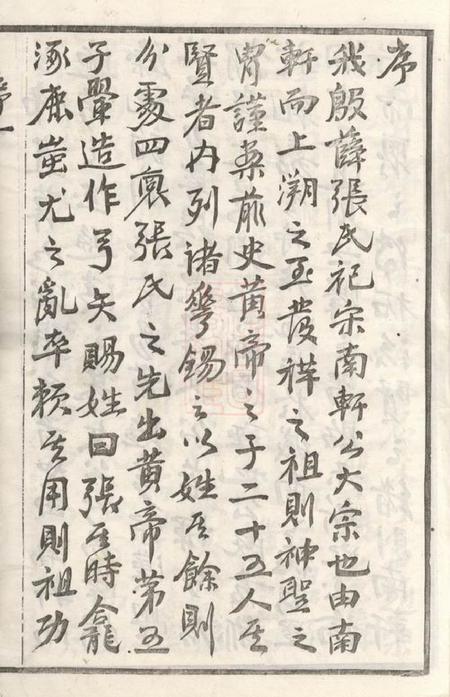 序
我殷薛張氏祀宗南軒公大宗也由南
軒而上溯之至發祥之祖則神聖之
胄謹桑前史黃帝之子二十五人其
賢者内列諸華錫之以姓其餘則
分處四裔張氏之先出黃帝第五
子暈造作弓矢賜姓曰張其時龕
涿鹿蚩尤之亂率賴其用則祖功
序一